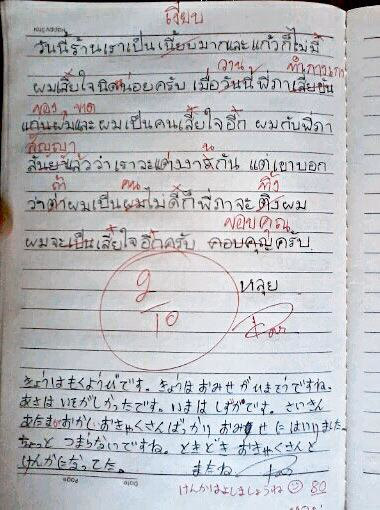 เงียบ
วันนี้ร้านเราเป็นเนี้ยบมากและแก้วก็ไม่มี
วาน ทำ
ผมเสี้ยใจนิดหน่อยครับ เมื่อวันนี้พี่ภา
แทนผมและ ผมเป็นคนเสี้ยใจอีก ผมกับพี่ภา
สัญญา
แล้วว่าเราจะแต่งงาสกัน แต่เขาบอก
ถ้า คน ทิ้ง
ว่าตำผมเป็นผมไม่ดีก็พี่ภาจะติงผม
ขอบคุณ
ผมจะเป็นเสี่ยใจอีกครับ คอบคุญครับ
9/10 หลุย
きょうはもくようびです。きょうはおみせがひまそうですね。
あさはいそがしかったです。いまはしずかです。さいきん
あたまおかしいおきゃくさんばっかりおみせにはいりました。
ちょっとつまらないですね。ときどきおきゃくさんと
けんかになってた。 またね
けんかはよしましょうね 80